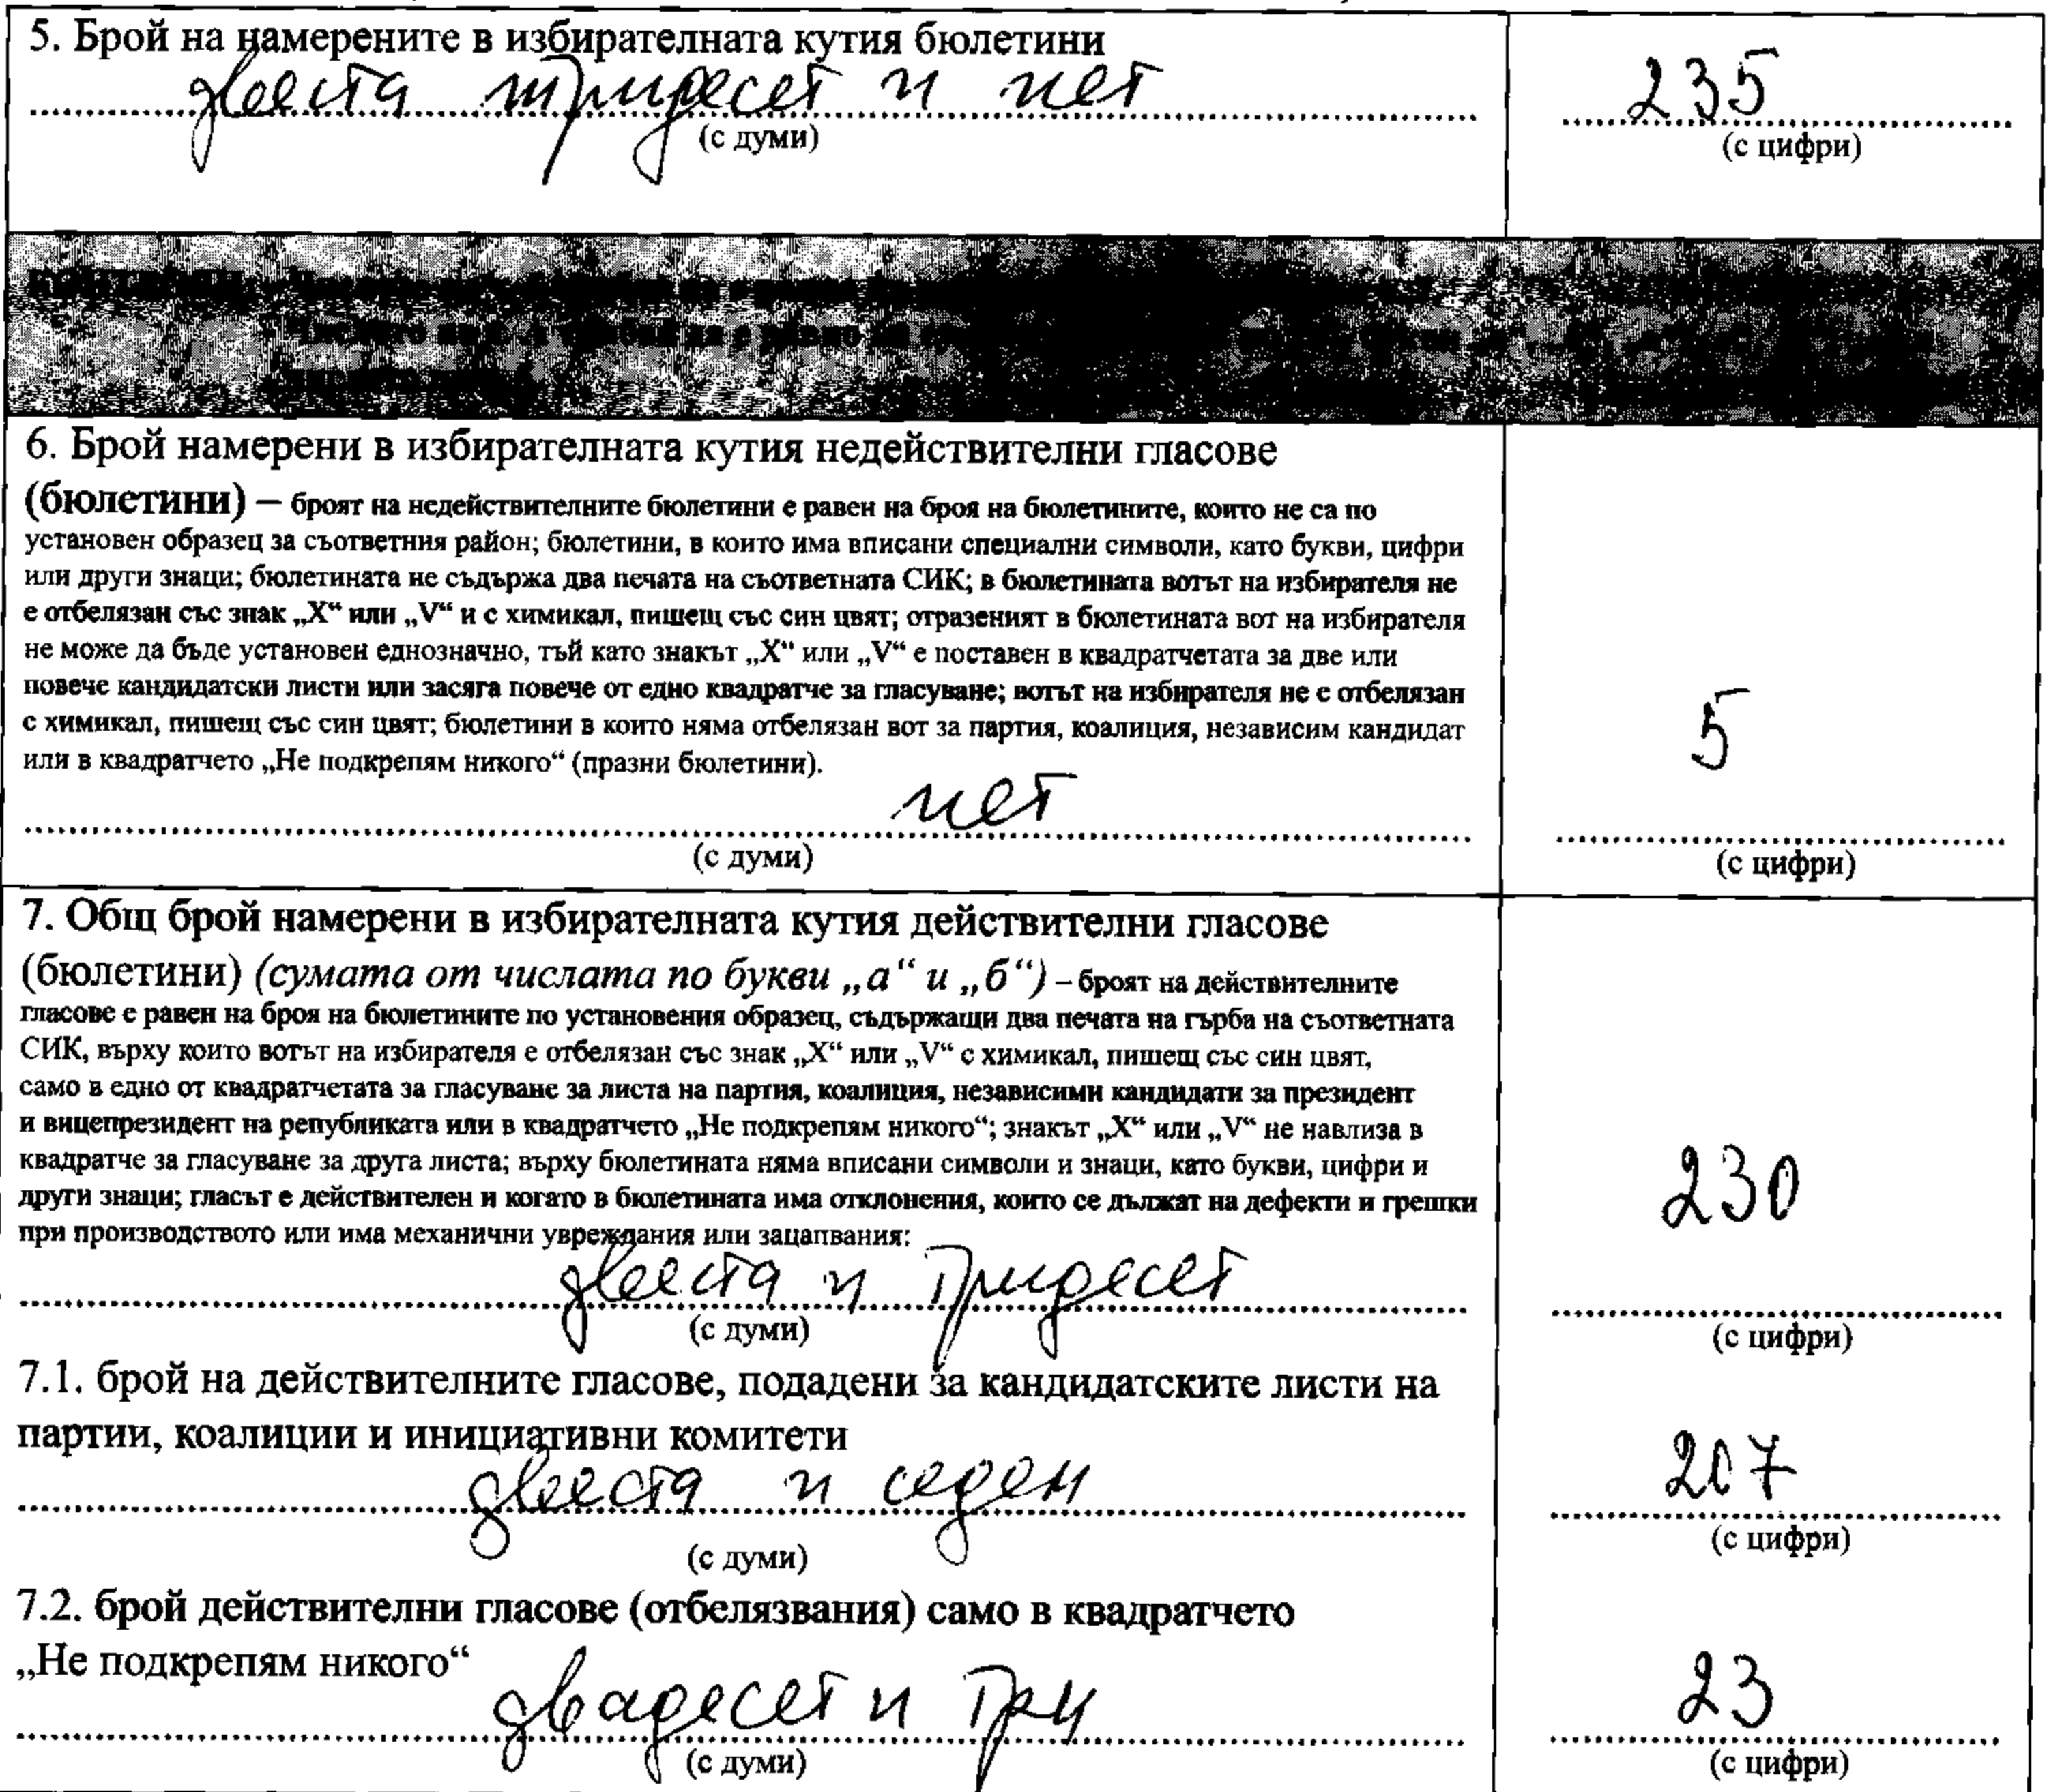 5. Брой на намерените в избирателната кутия бюлетини
двеста тридесет и пет
235
(с думи)
(с цифри)
6. Брой намерени в избирателната кутия недействителни гласове
(бюлетини) – броят на недействителните бюлетини е равен на броя на бюлетините, които не са по
установен образец за съответния район; бюлетини, в които има вписани специални символи, като букви, цифри
или други знаци; бюлетината не съдържа два печата на съответната СИК; в бюлетината вотът на избирателя не
е отбелязан със знак „X“ или „V“ и с химикал, пишещ със син цвят; отразеният в бюлетината вот на избирателя
не може да бъде установен еднозначно, тъй като знакът „X“ или „V“ е поставен в квадратчетата за две или
повече кандидатски листи или засяга повече от едно квадратче за гласуване; вотът на избирателя не е отбелязан
с химикал, пишещ със син цвят; бюлетини в които няма отбелязан вот за партия, коалиция, независим кандидат
или в квадратчето „Не подкрепям никого“ (празни бюлетини).
пет
5
(с думи)
(с цифри)
7. Общ брой намерени в избирателната кутия действителни гласове
(бюлетини) (сумата от числата по букви „а“ и „б“) – броят на действителните
гласове е равен на броя на бюлетините по установения образец, съдържащи два печата на гърба на съответната
СИК, върху които вотът на избирателя е отбелязан със знак „X“ или „V“ с химикал, пишещ със син цвят,
само в едно от квадратчетата за гласуване за листа на партия, коалиция, независими кандидати за президент
и вицепрезидент на републиката или в квадратчето „Не подкрепям никого“; знакът „X“ или „V“ не навлиза в
квадратче за гласуване за друга листа; върху бюлетината няма вписани символи и знаци, като букви, цифри и
други знаци; гласът е действителен и когато в бюлетината има отклонения, които се дължат на дефекти и грешки
при производството или има механични увреждания или зацапвания:
двеста и тридесет
230
(с думи)
(с цифри)
7.1. брой на действителните гласове, подадени за кандидатските листи на
партии, коалиции и инициативни комитети
двеста и седем
207
(с думи)
(с цифри)
7.2. брой действителни гласове (отбелязвания) само в квадратчето
„Не подкрепям никого“
двадесет и три
23
(с думи)
(с цифри)